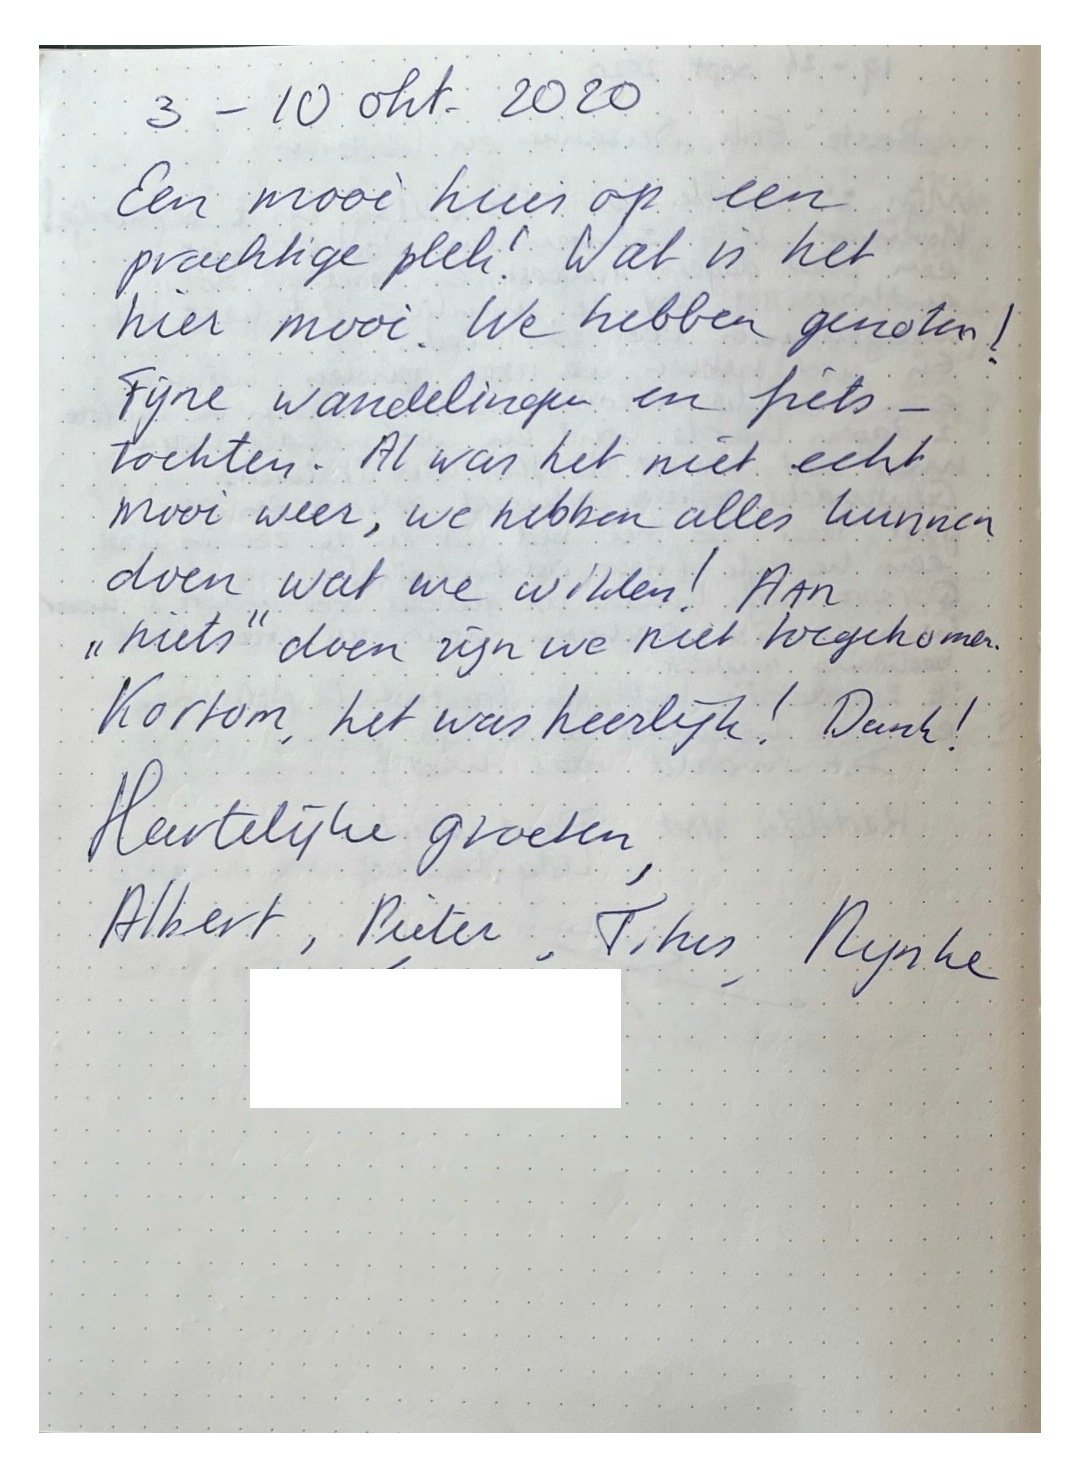 3 - 10 okt. 2020
Een mooi huis op een
prachtige plek! Wat is het
hier mooi. We hebben genoten!
Fijne wandelingen en fiets-
tochten. Al was het niet echt
mooi weer, we hebben alles kunnen
doen wat we wilden! Aan
„niets" doen zijn we niet toegekomen.
Kortom, het was heerlijk! Dank!
Hartelijke groeten,
Albert, Pieter, Titus, Nynke